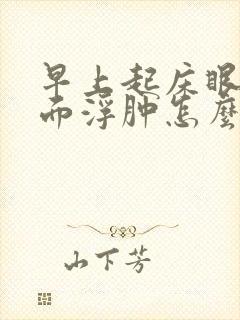 早上起床眼
而浮肿怎麽
山下芳